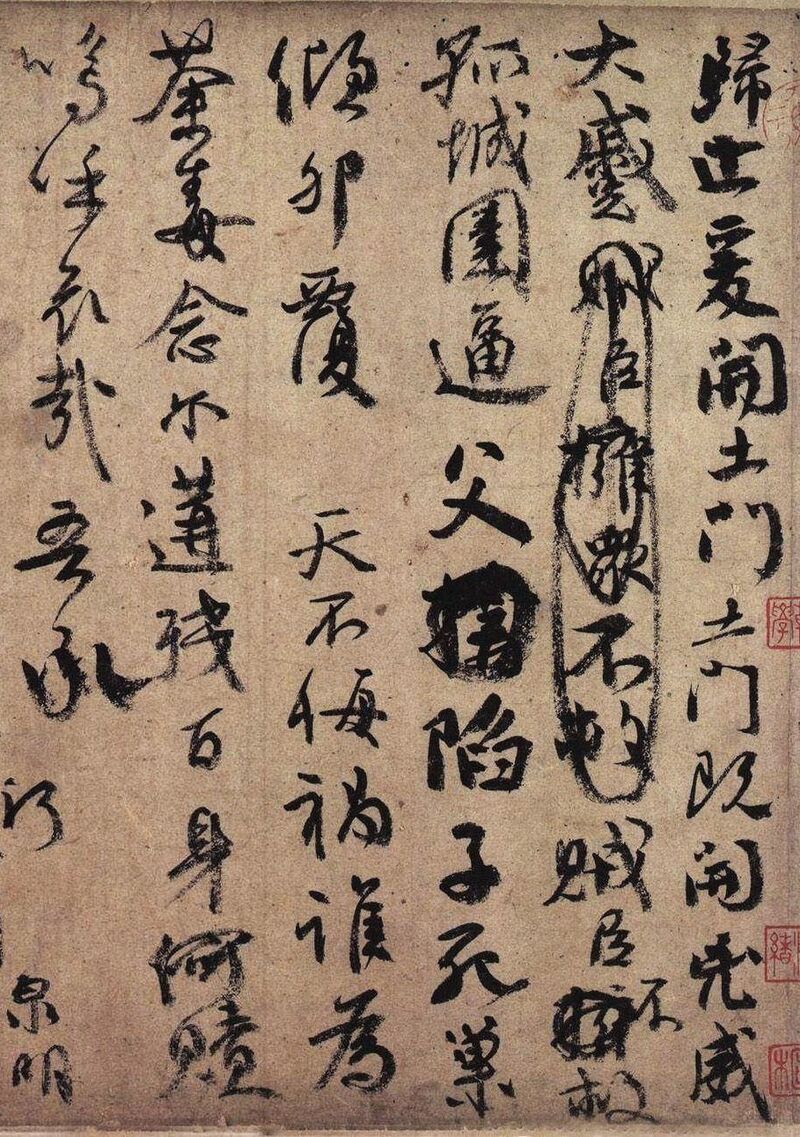 歸止爰開土門土門既開凶威
大蹙賊臣擁衆不救賊臣不救
孤城圍逼父陷子死巢
傾卵覆 天不悔禍誰為
荼毒念尔遘殘百身何贖
嗚呼哀哉吾承
泉明